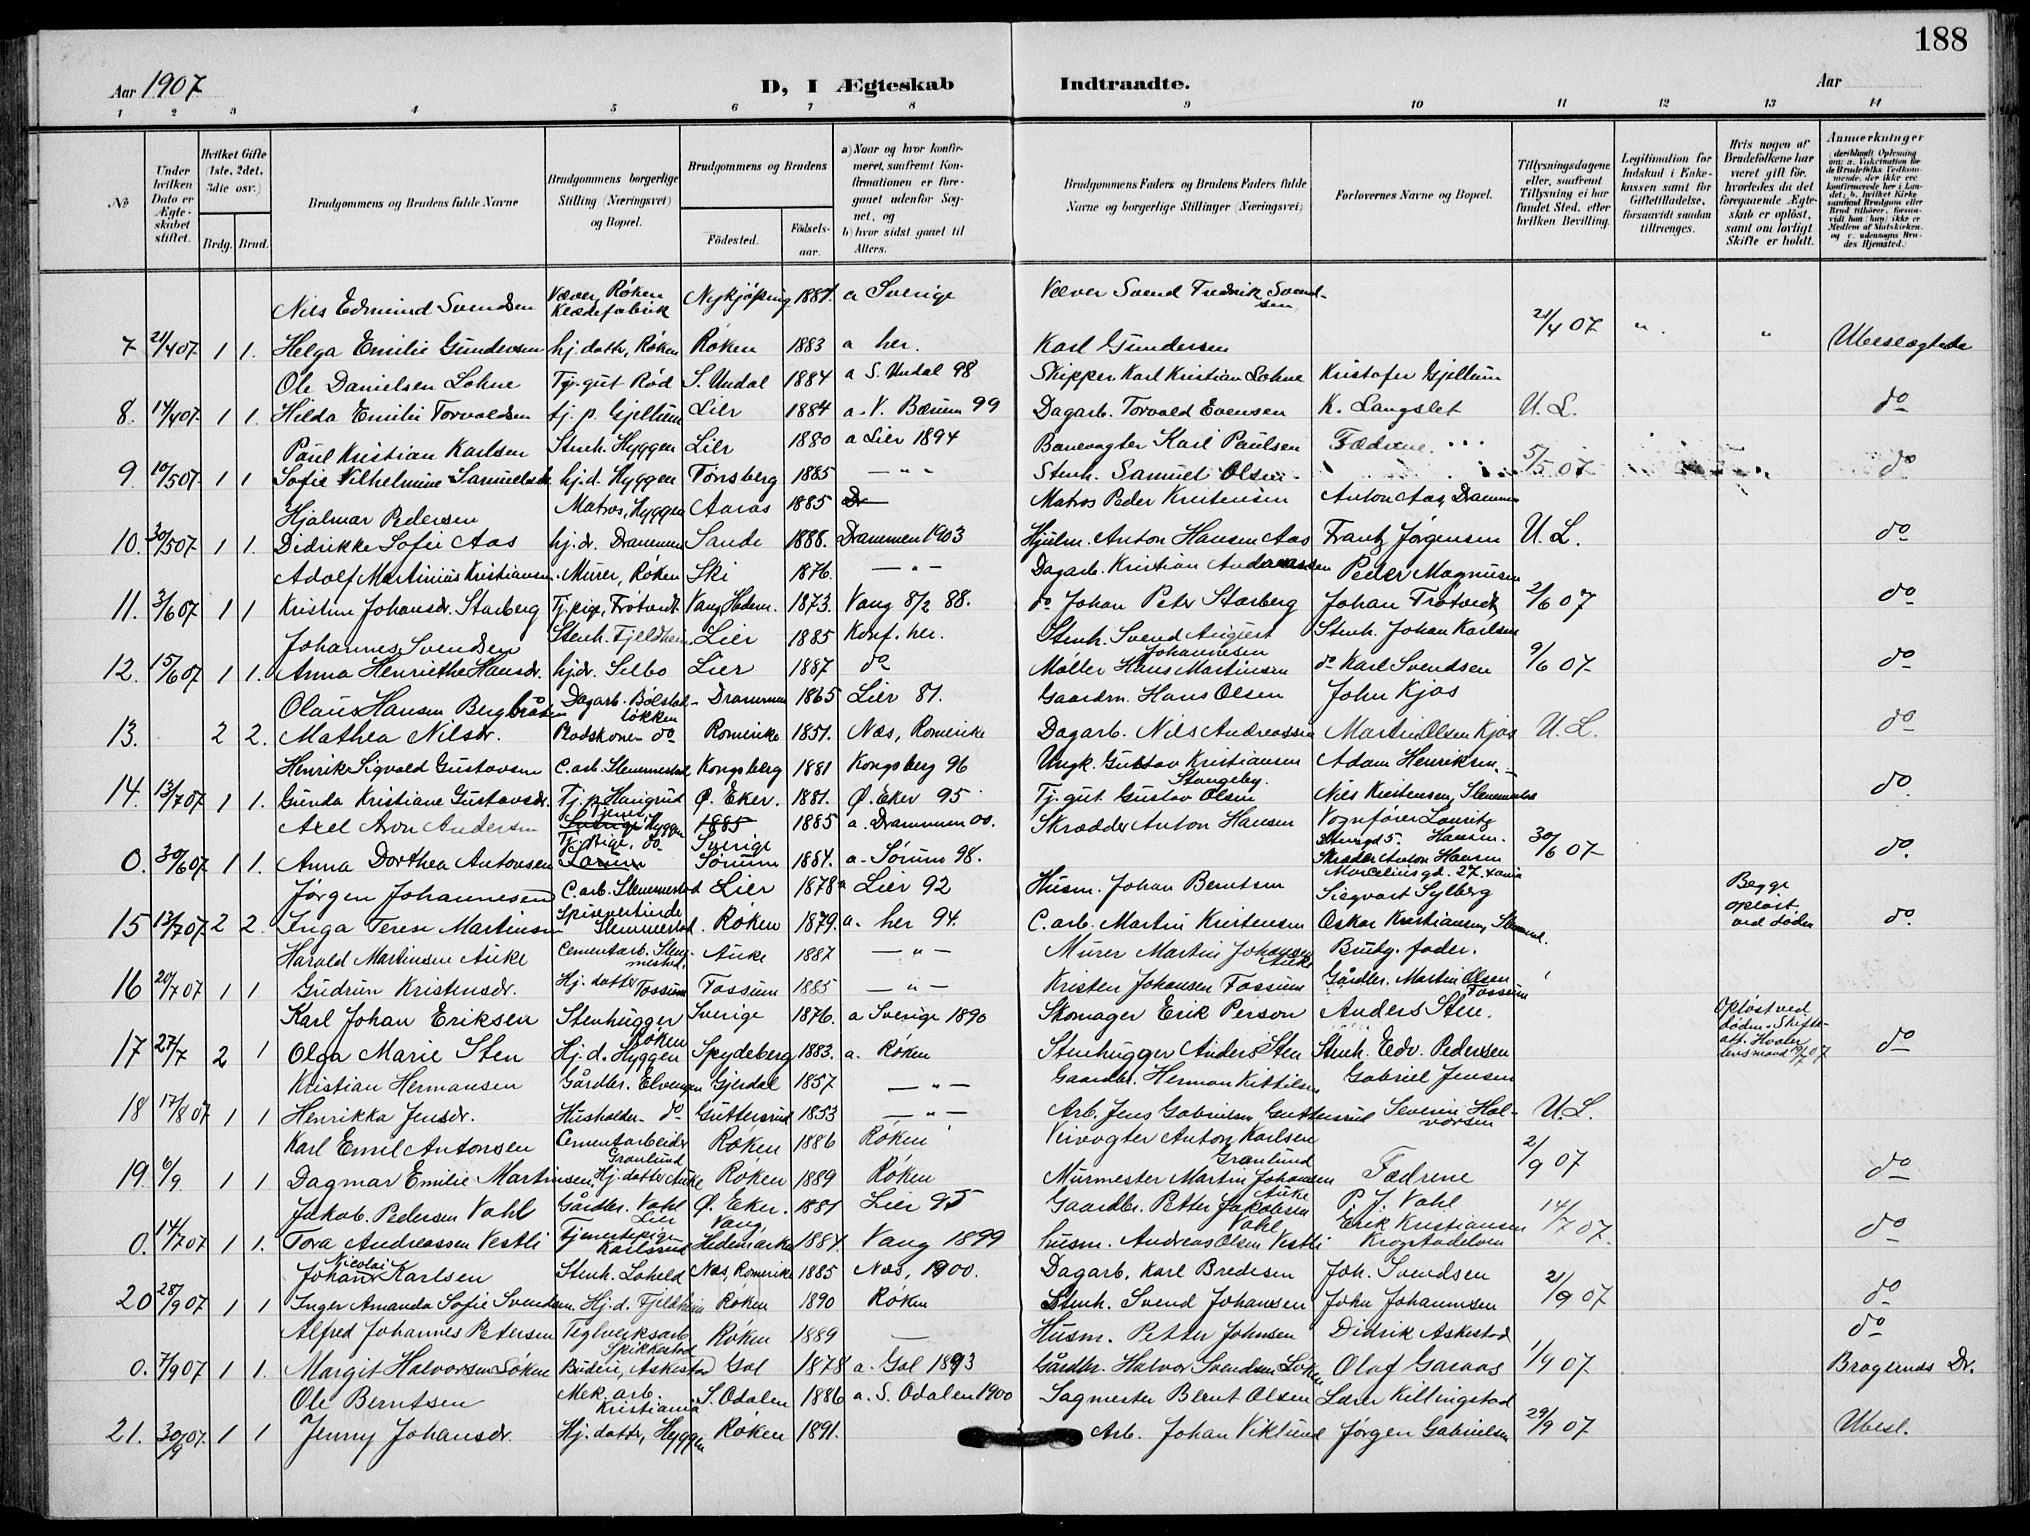 188
Aar 1907 D, I Ægteskab Indtraadte. Aar
1 2 3 4 5 6 7 8 9 10 11 12 13 14
No
Under hvilken Dato er Ægteskabet stiftet.
Hvilket Gifte (1ste, 2det, 3die osv.)
Brdg. Brud.
Brudgommens og Brudens fulde Navne
Brudgommens borgerlige Stilling (Næringsvei) og Bopæl.
Brudgommens og Brudens
Födested. Födsels-aar.
a) Naar og hvor konfirmeret, saafremt Konfirmationen er foregaaet udenfor Sognet, og b) hvor sidst gaaet til Alters.
Brudgommens Faders og Brudens Faders fulde Navne og borgerlige Stillinger (Næringsvei)
Forlovernes Navne og Bopæl.
Tillysningsdagene eller, saafremt Tillysning ei har fundet Sted, efter hvilken Bevilling.
Legitimation for Indskud i Enkekassen samt for Giftetilladelse, forsaavidt saadan tiltrænges.
Hvis nogen af Brudefolkene har været gift för, hvorledes da det foregaaende Ægteskab er oplöst, samt om lovligt Skifte er holdt.
Anmerkninger
Nils Edmund Svendsen Væver, Røken Klædefabrik Nykjøping 1884. a Sverige Væver Svend Fredrik Svendsen
7 21/4 07 1 1. Helga Emilie Gundersen hj. datter, Røken Røken 1883 a her. Karl Gundersen 21/4 07 " " Ubeslægtede
Ole Danielsen Lohne Tj. gut Rød S. Undal 1884 a S. Undal 98 Skipper Karl Kristian Lohne Kristofer Gjellum
8. 14/4 07. 1 1. Hilda Emilie Torvaldsen tj. p. Gjellum Lier 1884 a. V. Bærum 99 Dagarb. Torvald Evensen K. Langslet U. L. do
Paul Kristian Karlsen Stenh. Hyggen Lier 1880 a Lier 1894 Banevogter Karl Paulsen Fædrene.
9 10/5 07. 1 1 Sofie Vilhelmine Samuelsdr. hj. d. Hyggen Tønsberg 1885 — " - Stenh. Samuel Olsen 5/5 07 do
Hjalmar Pedersen Matros, Hyggen Aaros 1885 Matros Peder Kristensen Anton Aas, Drammen
10. 30/5 07. 1 1. Didrikke Sofie Aas hj. dr. Drammen Sande 1888. Drammen 1903 Hjulm. Anton Hansen Aas Frantz Jørgensen U. L. do
Adolf Martinius Kristiansen. Murer, Røken Ski 1876. — " - Dagarb. Kristian Andreassen Peder Magnusen
11. 3/6 07 1 1 Kristine Johansdr. Starberg Tj. pige, Frøtvedt. Vang Hedem. 1873. Vang 8/2 88. do Johan Peter Starberg Johan Frøtvedt 2/6 07 do
Johannes Svendsen Stenh. Fjeldheim Lier 1885 Konf. her. Stenh. Svend August Johannesen Stenh. Johan Karlsen
12. 15/6 07 1 1. Anna Henriethe Hansdr. hj. dr. Selbo Lier 1887 do Møller Hans Martinsen do Karl Svendsen 9/6 07 do
Olaus Hansen Bergbråten Dagarb. Bølstadløkken Drammen 1865 Lier 81. Gaardm. Hans Olsen John Kjos
13. 2 2. Mathea Nilsdr. do Romerike 1851. Næs, Romerike Dagarb. Nils Andreassen Martin Olsen Kjos U. L. do
Henrik Sigvald Gustavsen C. arb. Slemmestad Kongsberg 1881 Kongsberg 96 Ungk. Gustav Kristiansen Stangeby. Adam Henriksen.
14. 13/7 07 1 1. Gunda Kristiane Gustavsdr. Tj. p. Haugrud Ø. Eker. 1881. Ø. Eker 95 Tj. gut Gustav Olsen Nils Kristensen, Slemmestad do
Axel Aron Andersen Hyggen Sverige 1885 a. Drammen 00. Skrædder Anton Hansen Vognfører Lauritz Hansen.
0. 30/6 07. 1 1. Anna Dorthea Antonsen Tj. Pige, do Sørum 1884. a. Sørum 98. Skræder Anton Hansen Marceliusgd. 27. 30/6 07 do.
Jørgen Johannesen C. arb. Slemmestad Lier 1878 a Lier 92 Husm. Johan Berntsen Siegvart Sylberg Begge opløst ved døden
15 13/7 07 2 2. Inga Terese Martinsen Spisevertinde Slemmestad. Røken 1879. a. her 94. C. arb. Martin Kristensen Oskar Kristiansen, Slemmest. do.
Harald Martinsen Auke Cementarb. Slemmestad. Auke 1887 — " — Murer Martin Johansen Auke Brudg. fader.
16 20/7 07 1 1 Gudrun Kristensdr. Hj. datter Fossum Fossum 1885 — " — Kristen Johansen Fossum Gårdbr. Martin Olsen Fossum
Karl Johan Eriksen Stenhugger Røken Sverige 1876. a Sverige 1890 Skomager Erik Person Anders Sten. Opløst ved døden. Skifte
17 27/7 2 1 Olga Marie Sten Hj. d. Hyggen Spydeberg 1883. a. Røken Stenhugger Anders Sten Stenh. Edv. Pedersen do
Kristian Hermansen Gårdbr. Elvengen Gjerdal 1857 — " — Gaardbr. Herman Kittilsen Gabriel Jensen
18 17/8 07 1 1 Henrikka Jensdr. Husholder. do Guttersrud 1853 — " — Arb. Jens Gabrielsen Guttersrud Severin Halvorsen U. L.
Karl Emil Antonsen Cementarbeider Granlund Røken 1886 Røken Veivogter Anton Karlsen Granlund
19. 6/9 1 1 Dagmar Emilie Martinsen, Hj. datter Auke Røken 1889 Røken Murmester Martin Johansen Auke Fædrene 2/9 07 do
Jakob. Pedersen Vahl Gårdbr. Vahl Lier Ø. Eker. 1881 Lier 95 Gaardbr. Petter Jakobsen Vahl P. J. Vahl
0. 14/7 07 1 1. Tora Andreassen Vestli Tjenestepige Karlsrud Vang, Hedemarken 1884. Vang 1899 Husm. Andreas Olsen Vestli Erik Kristiansen Krogstadelven 14/7 07. do
Johan Nicolai Karlsen Stenh. Loheld Næs, Romerike 1885 Næs, 1900. Dagarb. Karl Bredesen Joh. Svendsen
20 28/9 07 1 1 Inger Amanda Sofie Svendsen. Hj. d. Fjeldheim Røken 1890 Røken Stenh. Svend Johansen John Johannesen 21/9 07 do
Alfred Johannes Petersen Teglverksarb. Spikkestad Røken 1889 — Husm. Petter Johnsen Didrik Askestad do
0. 7/9 07 1 1. Margit Halvorsen Søken Budeie, Askestad Gol 1878 a. Gol 1893 Gårdbr. Halvor Svendsen Olaf Garaas 1/9 07 Bragernes Dr.
Ole Berntsen Mek. arb. Kristiania S. Odalen 1886 a. S. Odalen 1900 Sagmester Bernt Olsen Lærer Killingstad
21. 30/9 07. 1 1 Jenny Johansdr. Hj. datter, Hyggen Røken 1891. Arb. Johan Viklund Jørgen Gabrielsen 29/9 07 Ubesl.